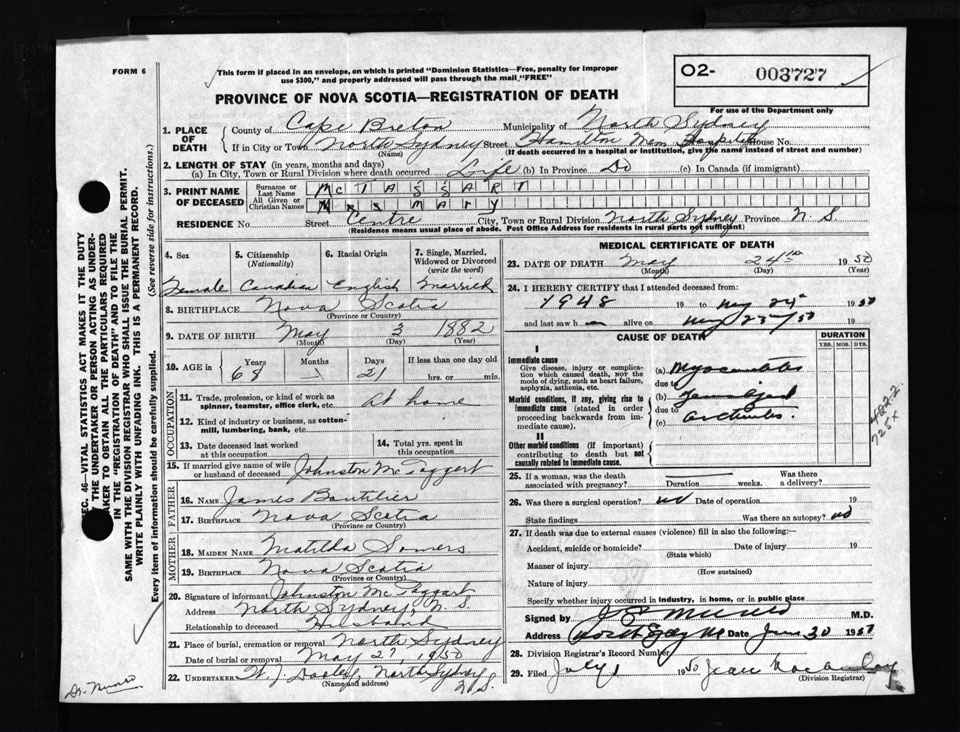 FORM 6
This form if placed in an envelope, on which is printed "Dominion Statistics—Free, penalty for improper
use $300," and properly addressed will pass through the mail "FREE"
O2- 003727
For use of the Department only
PROVINCE OF NOVA SCOTIA—REGISTRATION OF DEATH
1. PLACE OF DEATH
County of Cape Breton Municipality of North Sydney
If in City or Town North Sydney Street Hamilton Mem Hospital House No.
(Name) (If death occurred in a hospital or institution, give the name instead of street and number)
2. LENGTH OF STAY (in years, months and days)
(a) In City, Town or Rural Division where death occurred Life (b) In Province Do (c) In Canada (if immigrant)
3. PRINT NAME OF DECEASED
Surname or Last Name McTAGGART
All Given or Christian Names Mrs MARY
RESIDENCE No. Street Centre City, Town or Rural Division North Sydney Province N. S.
(Residence means usual place of abode. Post Office Address for residents in rural parts not sufficient)
4. Sex
Female
5. Citizenship (Nationality)
Canadian
6. Racial Origin
English
7. Single, Married, Widowed or Divorced (write the word)
Married
8. BIRTHPLACE Nova Scotia
(Province or Country)
9. DATE OF BIRTH May 3 1882
(Month) (Day) (Year)
10. AGE in Years Months Days If less than one day old
68 - 21 hrs. or min.
OCCUPATION
11. Trade, profession, or kind of work as spinner, teamster, office clerk, etc. at home
12. Kind of industry or business, as cotton-mill, lumbering, bank, etc.
13. Date deceased last worked at this occupation
14. Total yrs. spent in this occupation
15. If married give name of wife or husband of deceased Johnston McTaggert
FATHER
16. NAME James Boutilier
17. BIRTHPLACE Nova Scotia
(Province or Country)
MOTHER
18. MAIDEN NAME Matilda Somers
19. BIRTHPLACE Nova Scotia
(Province or Country)
20. Signature of informant Johnston McTaggart
Address North Sydney, N. S.
Relationship to deceased Husband
21. Place of burial, cremation or removal North Sydney
Date of burial or removal May 27, 1950
22. UNDERTAKER W. J. Dooley, North Sydney N. S.
(Name and address)
MEDICAL CERTIFICATE OF DEATH
23. DATE OF DEATH May 24th 1950
(Month) (Day) (Year)
24. I HEREBY CERTIFY that I attended deceased from:
1948 19 to May 24th 1950
and last saw h alive on May 23rd/50 19
CAUSE OF DEATH
DURATION
YRS. MOS. DYS.
I
Immediate cause
Give disease, injury or complication which caused death, NOT the mode of dying, such as heart failure, asphyxia, asthenia, etc.
Morbid conditions, if any, giving rise to immediate cause (stated in order proceeding backwards from immediate cause).
II
Other morbid conditions (if important) contributing to death but not causally related to immediate cause.
(a) Myocarditis
due to
(b)
due to
(c)
422.2
725x
25. If a woman, was the death associated with pregnancy? Duration weeks. Was there a delivery?
26. Was there a surgical operation? no Date of operation 19
State findings Was there an autopsy? no
27. If death was due to external causes (violence) fill in also the following:—
Accident, suicide or homicide? Date of injury 19
(State which)
Manner of injury
(How sustained)
Nature of injury
Specify whether injury occurred in industry, in home, or in public place
Signed by Munro M.D.
Address North Sydney NS Date June 30 1950
28. Division Registrar's Record Number
29. Filed July 1 1950 Jean
(Division Registrar)
SEC. 46—VITAL STATISTICS ACT MAKES IT THE DUTY
OF THE UNDERTAKER OR PERSON ACTING AS UNDERTAKER TO OBTAIN ALL THE PARTICULARS REQUIRED
IN THE "REGISTRATION OF DEATH" AND TO FILE THE
SAME WITH THE DIVISION REGISTRAR WHO SHALL ISSUE THE BURIAL PERMIT.
WRITE PLAINLY WITH UNFADING INK. THIS IS A PERMANENT RECORD.
Every item of information should be carefully supplied. (See reverse side for instructions.)
Dr. Munro